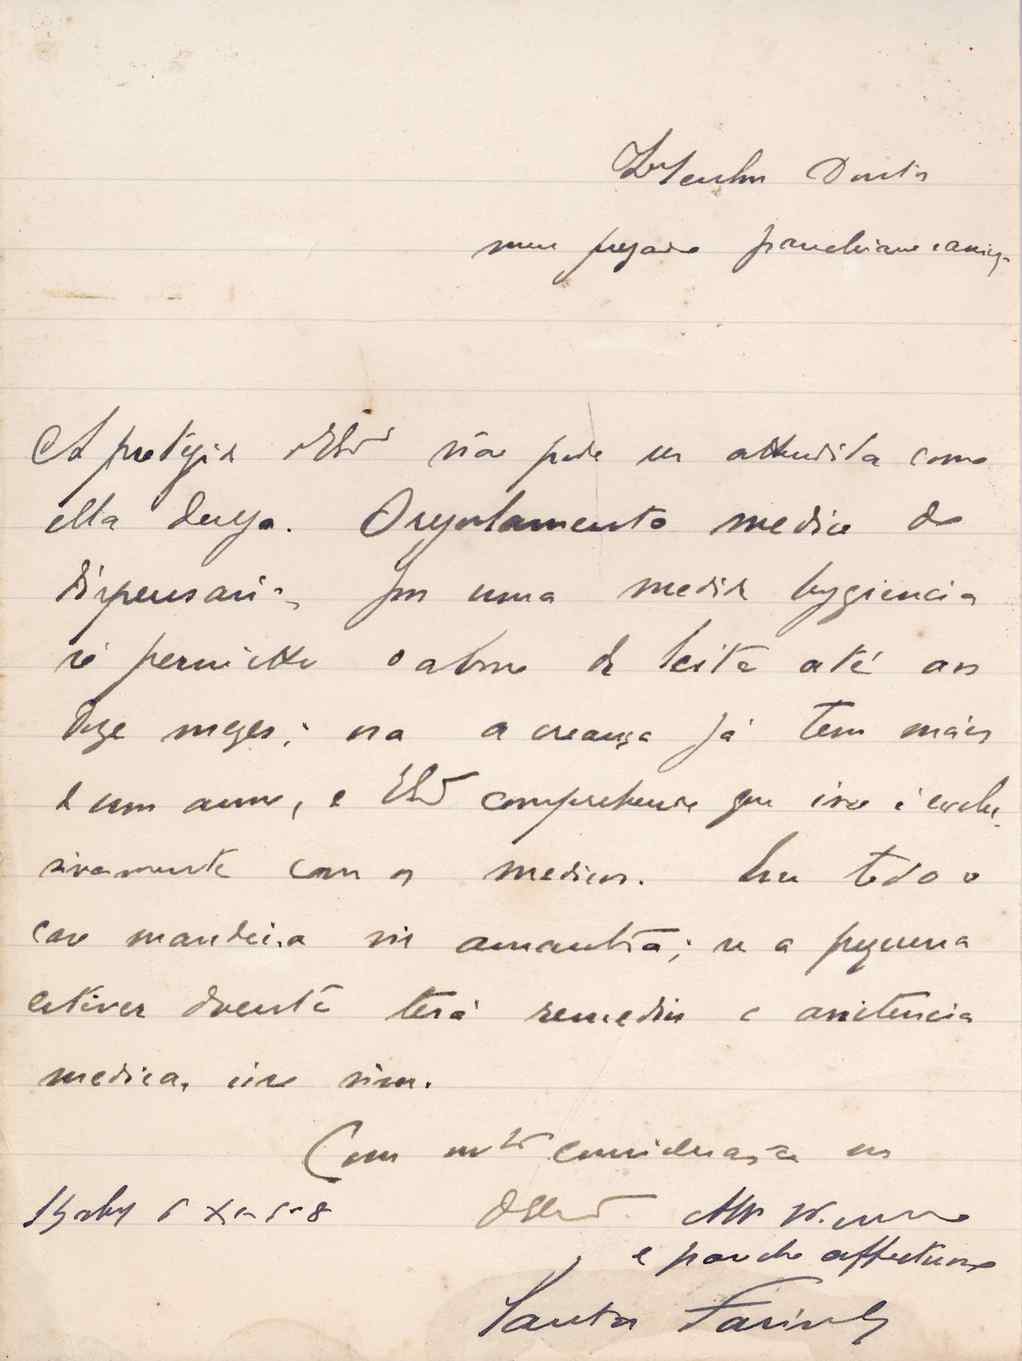 Senhor Doutor
meu presado parochiano e amigo
A protegida d'V. Ex.ª não pode ser attendida como
ella deseja. O regulamento medico do
dispensario, por uma medida hygienica
só permitte o abono de leite até aos
doze mezes; ora a creança já tem mais
d'um anno, e V. Ex.ª comprehende que isso é exclu-
sivamente com os medicos. Em todo o
caso mandei-a vir amanhã; se a pequena
estiver doente terá remedios e assistencia
medica, isso sim.
Com m.ta consideração sou
6
De V. Ex.ª
e parocho affectuoso
Santos Farinha